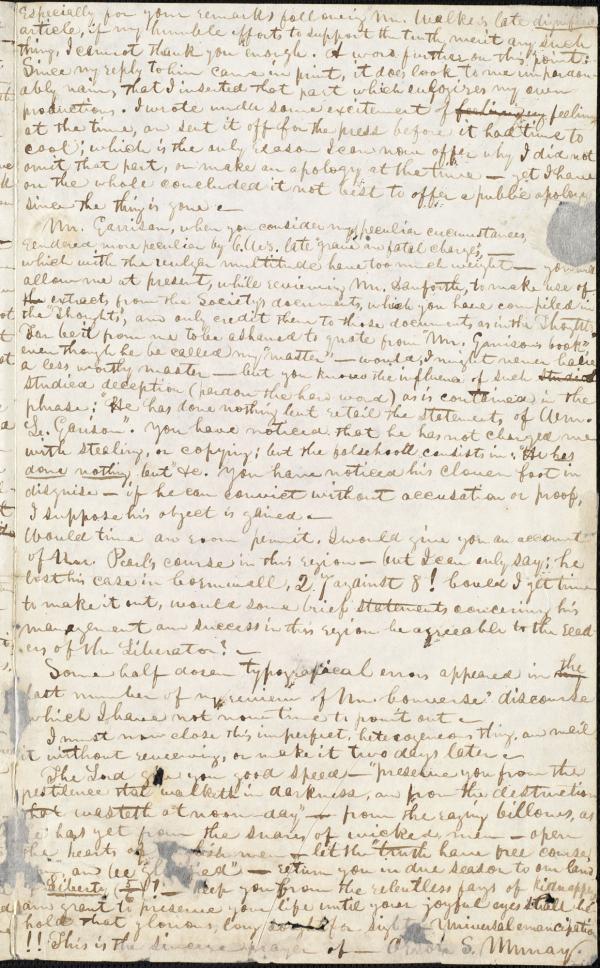 Especially for your remarks following Mr. Walker's late dignified
article, if my humble efforts to support the truth merit any such
thing, I cannot thank you enough. A word further on this point:
Since my reply to him came in print, it does look to me unpardon-
ably vain, that I inserted that part which eulogizes my own
productions. I wrote under some excitement of feeling
at the time, and sent it off for the press before it had time to
cool; which is the only reason I can now offer why I did not
omit that part, or make an apology at the time — yet I have
on the whole concluded it not best to offer a public apology
since the thing is gone —
Mr. Garrison, when you consider my peculiar circumstances,
rendered more peculiar by late "grave and fatal charge",
which with the vulgar multitude have too much weight — you will
allow me at present, while reviewing Mr. Danforth, to make use of
the extracts from the Society's documents, which you have compiled in
the "Thoughts", and only credit them to those documents as in the "Thoughts".
Far be it from me to be ashamed to quote from Mr. Garrison's book,
even though he be called my "master" — would, I might never have
a less worthy master — but you know the influence of such studied
studied deception (pardon the hard word) as is contained in the
phrase; "He has done nothing but retail the statements of Wm.
L. Garrison". You have noticed that he has not charged me
with stealing, or copying; but the falsehood consists in, "He has
done nothing but" &c. You have noticed his cloven foot in
disguise — if he can convict without accusation or proof,
I suppose his object is gained —
Would time and room permit, I would give you an account
of Mr. Pearl's course in this region — but I can only say; he
lost his case in Cornwall, 27 against 8! Could I get time
to make it out, would some brief statements concerning his
management and success in this region be agreeable to the Read-
ers of the Liberator? —
Some half dozen typographical errors appeared in the
last number of my review of Mr. Converse' discourse
which I have not now time to point out —
I must now close this imperfect, heterogeneous thing, and mail
it without reviewing, or make it two days later —
The Lord give you good speed — "preserve you from the
pestilence that walketh in darkness, and from the destruction
that wasteth at noon-day" — from the raging billows, as
he has yet from the snares of wicked men — open
the hearts of men — let the "truth have free course,
and be glorified" — return you in due season to our land
of Liberty (?)! — keep you from the relentless fangs of kidnappers
and grant to preserve your life until your joyful eyes shall be-
hold that, glorious, long sought for sight Universal emancipation
!! This is the sincere prayer of — Orson S. Murray.